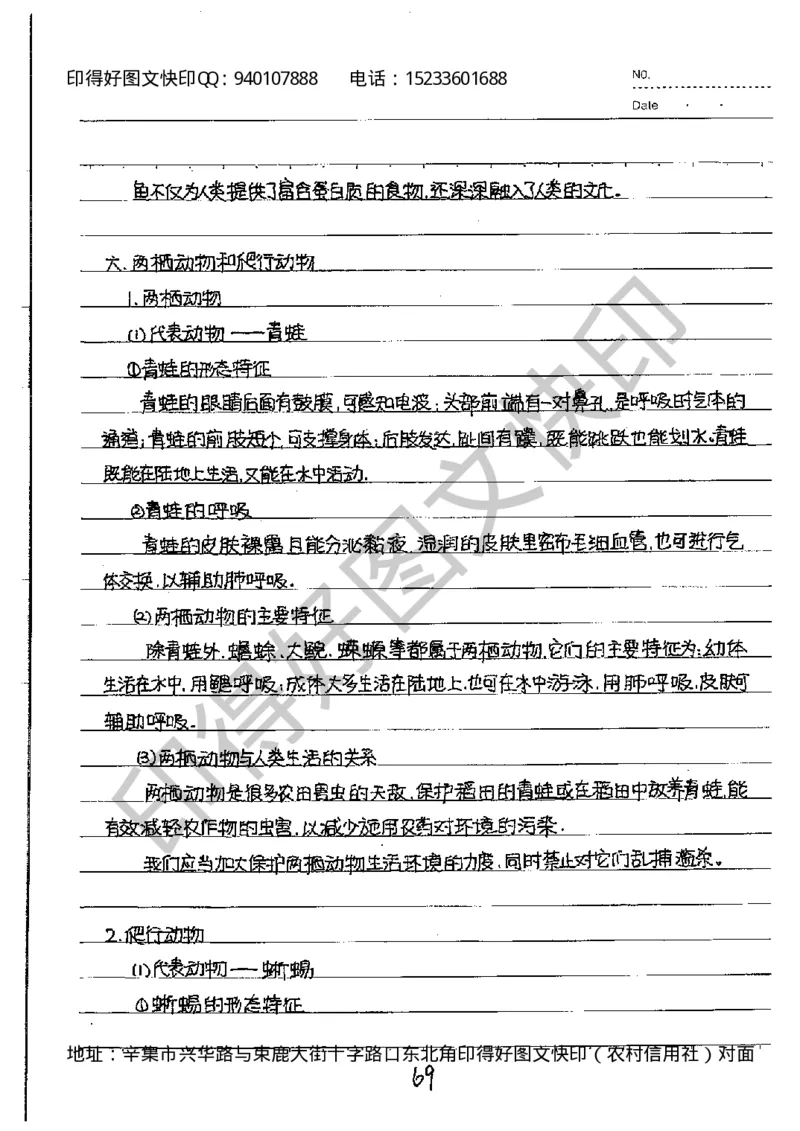 印得好图文快印QQ：940107888 电话：15233601688
NO.
Date
鱼不仅为人类提供了富含蛋白质的食物,还深深融入了人类的文化。
六.两栖动物和爬行动物
1.两栖动物
(1)代表动物——青蛙
①青蛙的形态特征
青蛙的眼睛后面有鼓膜,可感知电波;头部前端有一对鼻孔,是呼吸时气体的
通道;青蛙的前肢短个,可支撑身体;后肢发达,趾间有蹼,既能跳跃也能划水.青蛙
既能在陆地上生活,又能在水中活动.
②青蛙的呼吸
青蛙的皮肤裸露且能分泌黏液,湿润的皮肤里密布毛细血管,也可进行气
体交换,以辅助肺呼吸.
(2)两栖动物的主要特征
除青蛙外,蟾蜍.大鲵.蝾螈等都属于两栖动物,它们的主要特征为:幼体
生活在水中,用鳃呼吸;成体大多生活在陆地上,也可在水中游泳,用肺呼吸,皮肤可
辅助呼吸.
(3)两栖动物与人类生活的关系
两栖动物是很多农田害虫的天敌,保护稻田的青蛙或在稻田中放养青蛙,能
有效减轻农作物的虫害,以减少施用农药对环境的污染.
我们应当加大保护两栖动物生活环境的力度,同时禁止对它们乱捕滥杀。
2.爬行动物
(1)代表动物——蜥蜴
①蜥蜴的形态特征
地址：辛集市兴华路与束鹿大街十字路口东北角印得好图文快印（农村信用社）对面
69
印得好图文快印